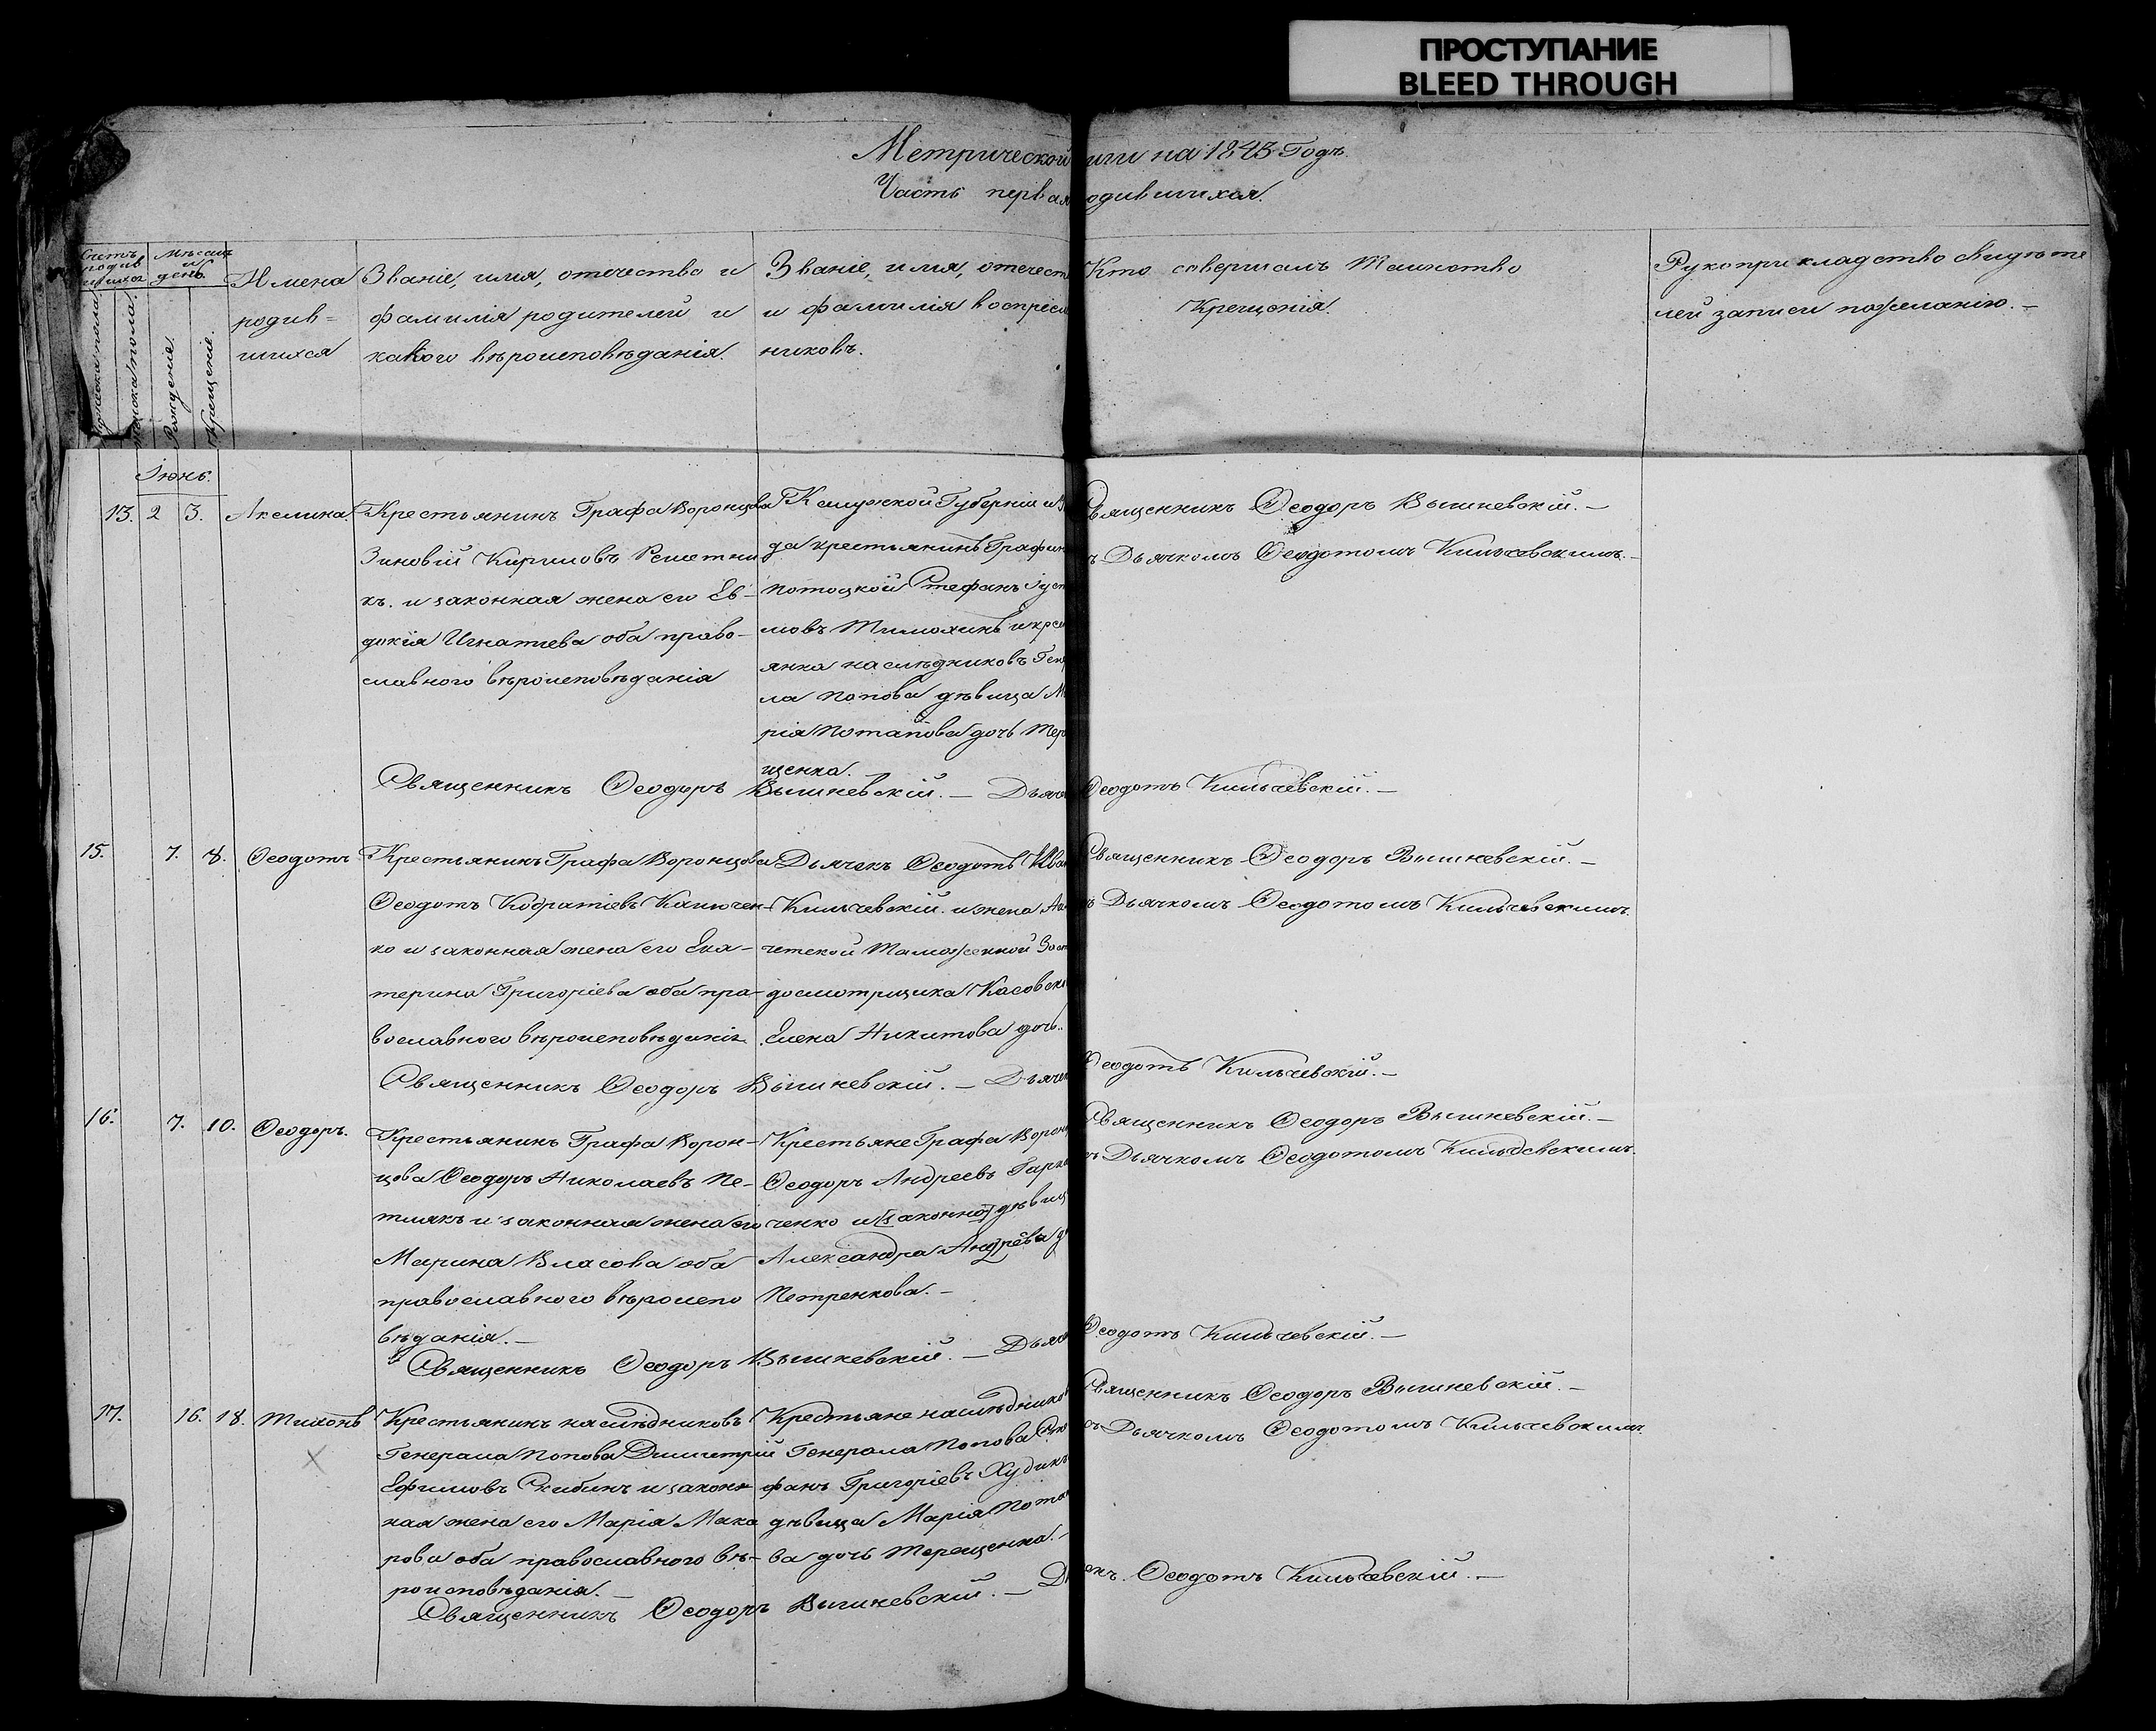 ПРОСТУПАНИЕ
BLEED THROUGH
Метрической иги на 1843 Годъ.
Часть первая одившихся.
Счетъ родив шихся
Мѣсяцъ и день.
мужеска пола.
женска пола.
Рожденіе.
Крещеніе.
Имена
родив=
шихся
Званіе, имя, отечество и
фамилія родителей и
какого вѣроисповѣданія.
Званіе, имя, отечест
и фамилія воспріем
никовъ.
Кто совершалъ Таинство
Крещенія.
Рукоприкладство свидѣте
лей записи пожеланію. —
Іюнь.
13. 2 3. Акелина.
Крестьянинъ Графа Воронцова
Зиновій Кириловъ Решетни
къ. и законная жена его Ев-
докія Игнатіева оба право-
славного вѣроисповѣданія
Калужской Губерніи и
да крестьянинъ Графин
Потоцкой Стефанъ
мовъ Тимохинъ и крес
янка наслѣдниковъ Ген
ла Попова дѣвица М
рія Потапова дочь Тер
щенка.
Священникъ Ѳеодоръ Вышневскій. —
ъ Дьячкомъ Ѳеодотомъ Кильчевскимъ. —
Священникъ Ѳеодоръ Вышневскій. — Дьяч Ѳеодотъ Кильчевскій. —
15. 7. 8. Ѳеодотъ
Крестьянинъ Графа Воронцова
Ѳеодотъ Кодратіевъ Каплючен-
ко и законная жена его Ека-
терина Григоріева оба пра-
вославного вѣроисповѣданія
Дьячекъ Ѳеодотъ Иван
Кильчевскій. и жена
четской Таможенной Заст
досмотрщика Касовск
Елена Никитова дочь.
Священникъ Ѳеодоръ Вышневскій. —
ъ Дьячкомъ Ѳеодотомъ Кильчевскимъ.
Священникъ Ѳеодоръ Вышневскій. — Дьячек Ѳеодотъ Кильчевскій. —
16. 7. 10. Ѳеодоръ.
Крестьянинъ Графа Ворон-
цова Ѳеодоръ Николаевъ Пе-
тлякъ и законная жена его
Марина Власова оба
православного вѣроиспо
вѣданія. —
Крестьяне Графа Ворон
Ѳеодоръ Андреевъ Гарк
ченко и [законно] дѣвиц
Александра Андрѣева д
Петренкова. —
Священникъ Ѳеодоръ Вышневскій. —
ъ Дьячкомъ Ѳеодотомъ Кильчевскимъ.
Священникъ Ѳеодоръ Вышневскій. — Дьяч Ѳеодотъ Кильчевскій. —
17. 16. 18. Тихонъ
Крестьянинъ наслѣдниковъ
Генерала Попова Димитрій
Ефимовъ Скибинъ и закон
ная жена его Марія Мака
рова оба православного вѣ-
роисповѣданія. —
Крестьяне наслѣдников
Генерала Попова Сте
фанъ Григоріевъ Худикъ
дѣвица Марія Потап
ва дочь Терещенка. —
Священникъ Ѳеодоръ Вышневскій. —
ъ Дьячкомъ Ѳеодотомъ Кильчевскимъ.
Священникъ Ѳеодоръ Вышневскій. — Д екъ. Ѳеодотъ Кильчевскій. —